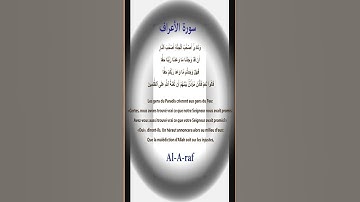 سورة الأعراف
وَنَادَىٰ أَصْحَٰبُ ٱلْجَنَّةِ أَصْحَٰبَ ٱلنَّارِ
أَن قَدْ وَجَدْنَا مَا وَعَدَنَا رَبُّنَا حَقًّا
فَهَلْ وَجَدتُّم مَّا وَعَدَ رَبُّكُمْ حَقًّا
قَالُوا۟ نَعَمْ فَأَذَّنَ مُؤَذِّنٌۢ بَيْنَهُمْ أَن لَّعْنَةُ ٱللَّهِ عَلَى ٱلظَّٰلِمِينَ
Les gens du Paradis crieront aux gens du Feu:
«Certes, nous avons trouvé vrai ce que notre Seigneur nous avait promis
Avez-vous aussi trouvé vrai ce que votre Seigneur avait promis?»
«Oui», diront-ils. Un héraut annoncera alors au milieu d'eux:
Que la malédiction d'Allah soit sur les injustes,
Al-A-raf